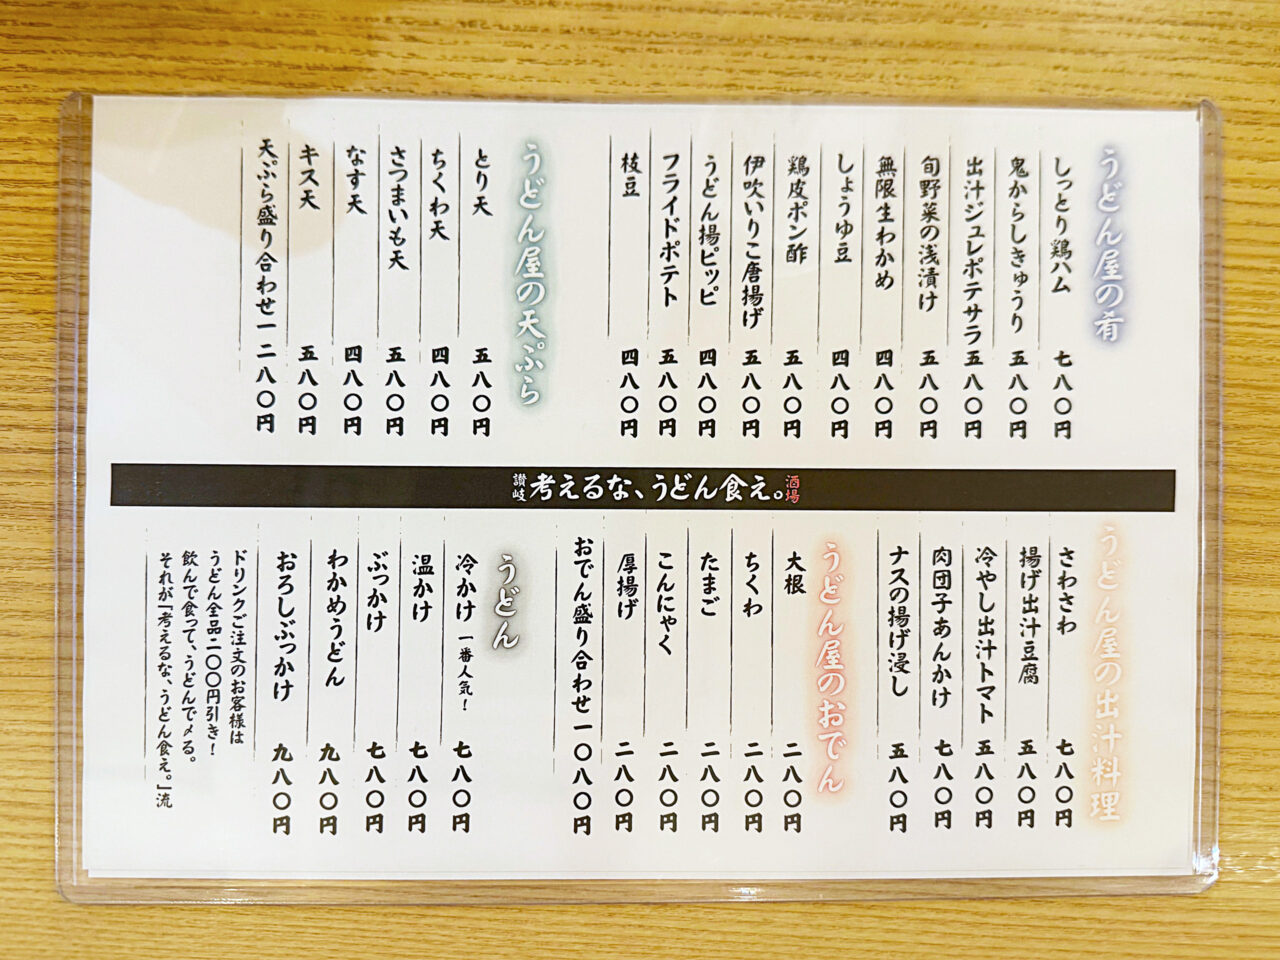 うどん屋の肴
しっとり鶏ハム 七八〇円
鬼からしきゅうり 五八〇円
出汁ジュレポテサラ 五八〇円
旬野菜の浅漬け 五八〇円
無限生わかめ 四八〇円
しょうゆ豆 四八〇円
鶏皮ポン酢 五八〇円
伊吹いりこ唐揚げ 五八〇円
うどん揚ピッピ 四八〇円
フライドポテト 五八〇円
枝豆 四八〇円
うどん屋の天ぷら
とり天 五八〇円
ちくわ天 四八〇円
さつまいも天 五八〇円
なす天 四八〇円
キス天 五八〇円
天ぷら盛り合わせ 一二八〇円
讃岐 考えるな、うどん食え。 酒場
うどん屋の出汁料理
さわさわ 七八〇円
揚げ出汁豆腐 五八〇円
冷やし出汁トマト 五八〇円
肉団子あんかけ 七八〇円
ナスの揚げ浸し 五八〇円
うどん屋のおでん
大根 二八〇円
ちくわ 二八〇円
たまご 二八〇円
こんにゃく 二八〇円
厚揚げ 二八〇円
おでん盛り合わせ 一〇八〇円
うどん
冷かけ 一番人気！ 七八〇円
温かけ 七八〇円
ぶっかけ 七八〇円
わかめうどん 九八〇円
おろしぶっかけ 九八〇円
ドリンクご注文のお客様は
うどん全品二〇〇円引き！
飲んで食って、うどんで〆る。
それが「考えるな、うどん食え。」流